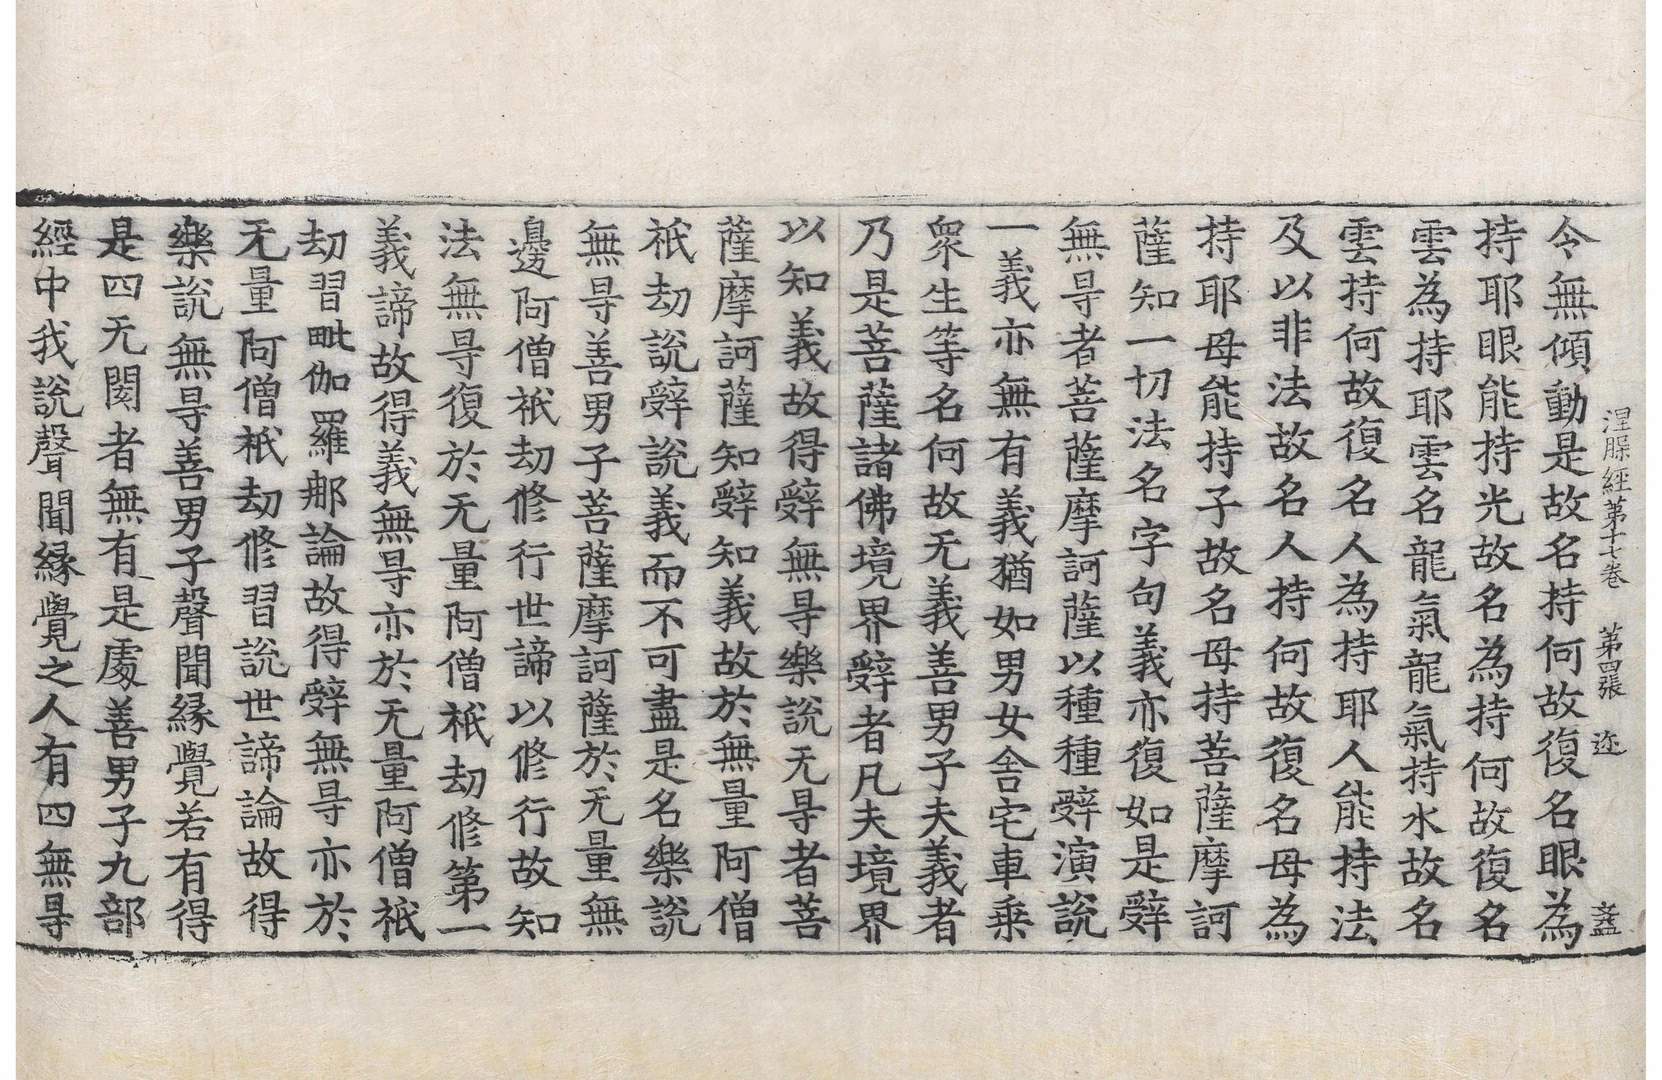 涅脲經第十七卷 第四張 迩 盏
令無傾動是故名持何故復名眼為
持耶眼能持光故名為持何故復名
雲為持耶雲名龍氣龍氣持水故名
雲持何故復名人為持耶人能持法
及以非法故名人持何故復名母為
持耶母能持子故名母持菩薩摩訶
薩知一切法名字句義亦復如是辤
無㝵者菩薩摩訶薩以種種辤演說
一義亦無有義猶如男女舍宅車乗
衆生等名何故无義善男子夫義者
乃是菩薩諸佛境界辤者凡夫境界
以知義故得辤無㝵樂說无㝵者菩
薩摩訶薩知辤知義故於無量阿僧
祇劫說辤說義而不可盡是名樂說
無㝵善男子菩薩摩訶薩於无量無
邊阿僧祇劫修行世諦以修行故知
法無㝵復於无量阿僧祇劫修第一
義諦故得義無㝵亦於无量阿僧祇
劫習毗伽羅郍論故得辤無㝵亦於
无量阿僧祇劫修習說世諦論故得
樂說無㝵善男子聲聞緣覺若有得
是四无閡者無有是處善男子九部
經中我說聲聞緣覺之人有四無㝵